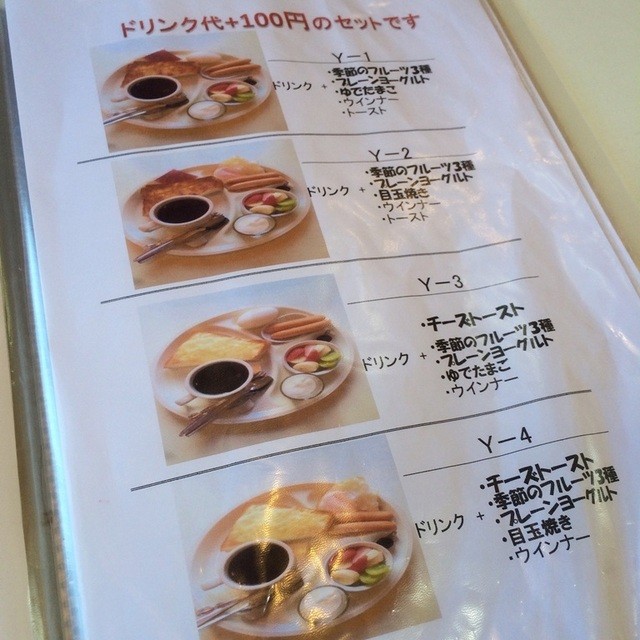 ドリンク代+100円のセットです
Y-1
・季節のフルーツ3種
・プレーンヨーグルト
ドリンク + ・ゆでたまご
・ウインナー
・トースト
Y-2
・季節のフルーツ3種
・プレーンヨーグルト
ドリンク + ・目玉焼き
・ウインナー
・トースト
Y-3
・チーストースト
・季節のフルーツ3種
ドリンク + ・プレーンヨーグルト
・ゆでたまご
・ウインナー
Y-4
・チーストースト
・季節のフルーツ3種
ドリンク + ・プレーンヨーグルト
・目玉焼き
・ウインナー